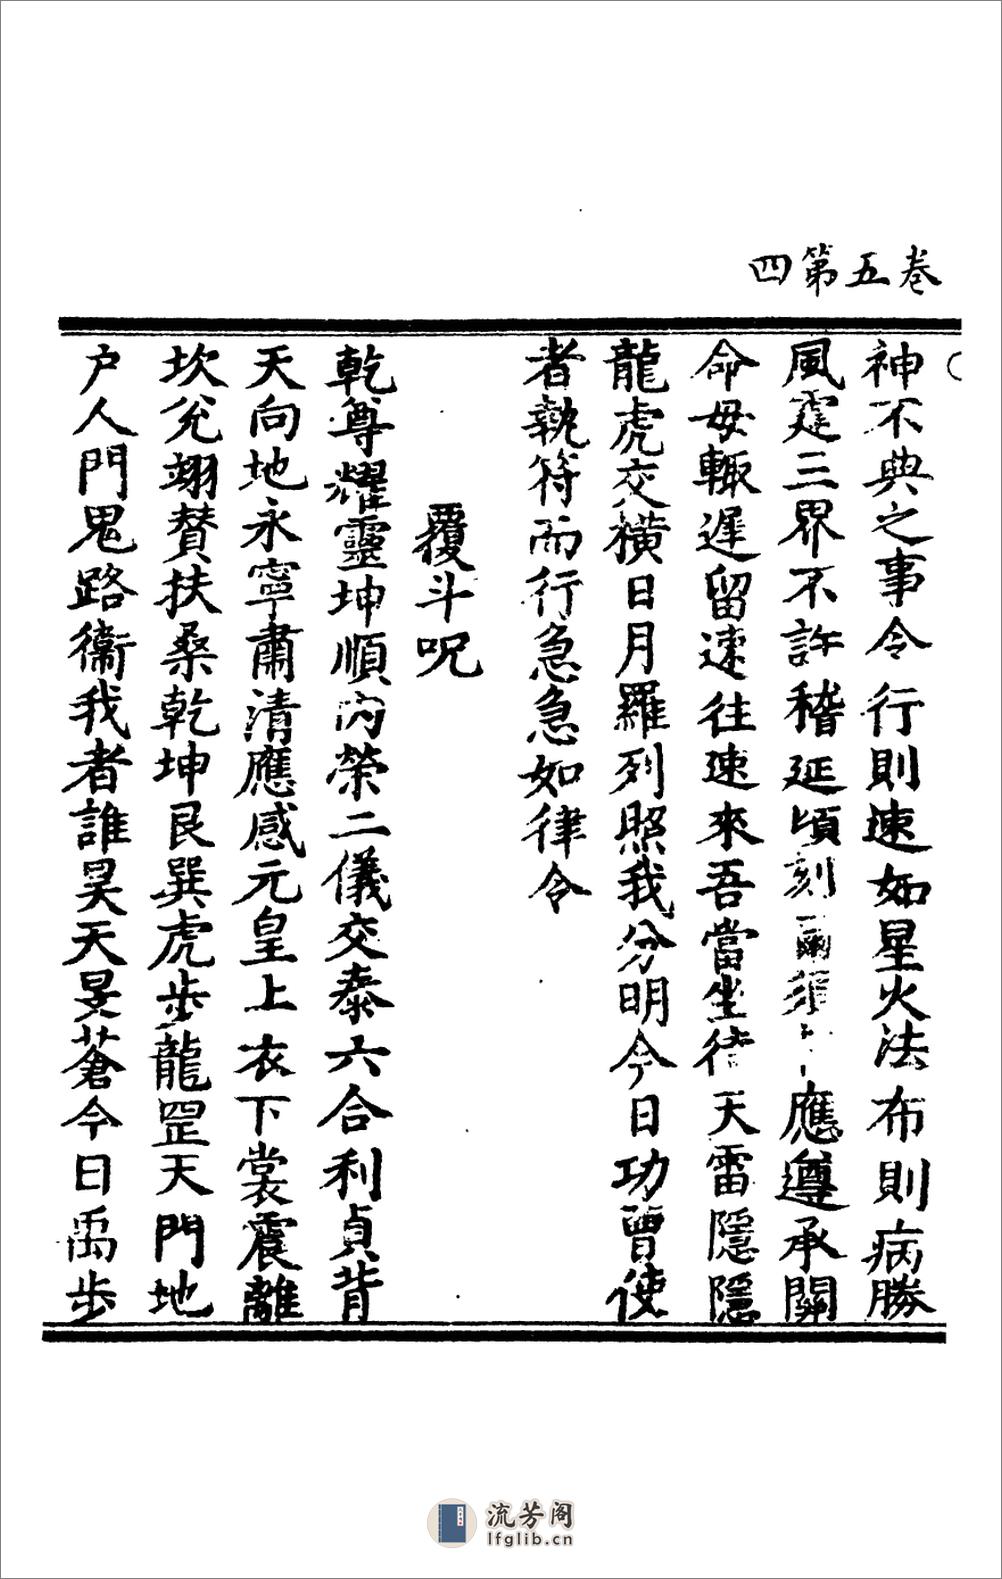 卷五第四
神不典之事令行則速如星火法布則病勝
風霆三界不許稽延頃刻爾須應遵承關
命毋輒遲留速往速來吾當坐待天雷隱隱
龍虎交橫日月羅列照我分明今日功曹使
者執符而行急急如律令
覆斗呪
乾尊耀靈坤順內榮二儀交泰六合利貞背
天向地永寧肅清應感元皇上衣下裳震離
坎兌翊贊扶桑乾坤艮巽虎步龍罡天門地
户人門鬼路衛我者誰昊天旻蒼今日禹步
流芳阁
lfglib.cn